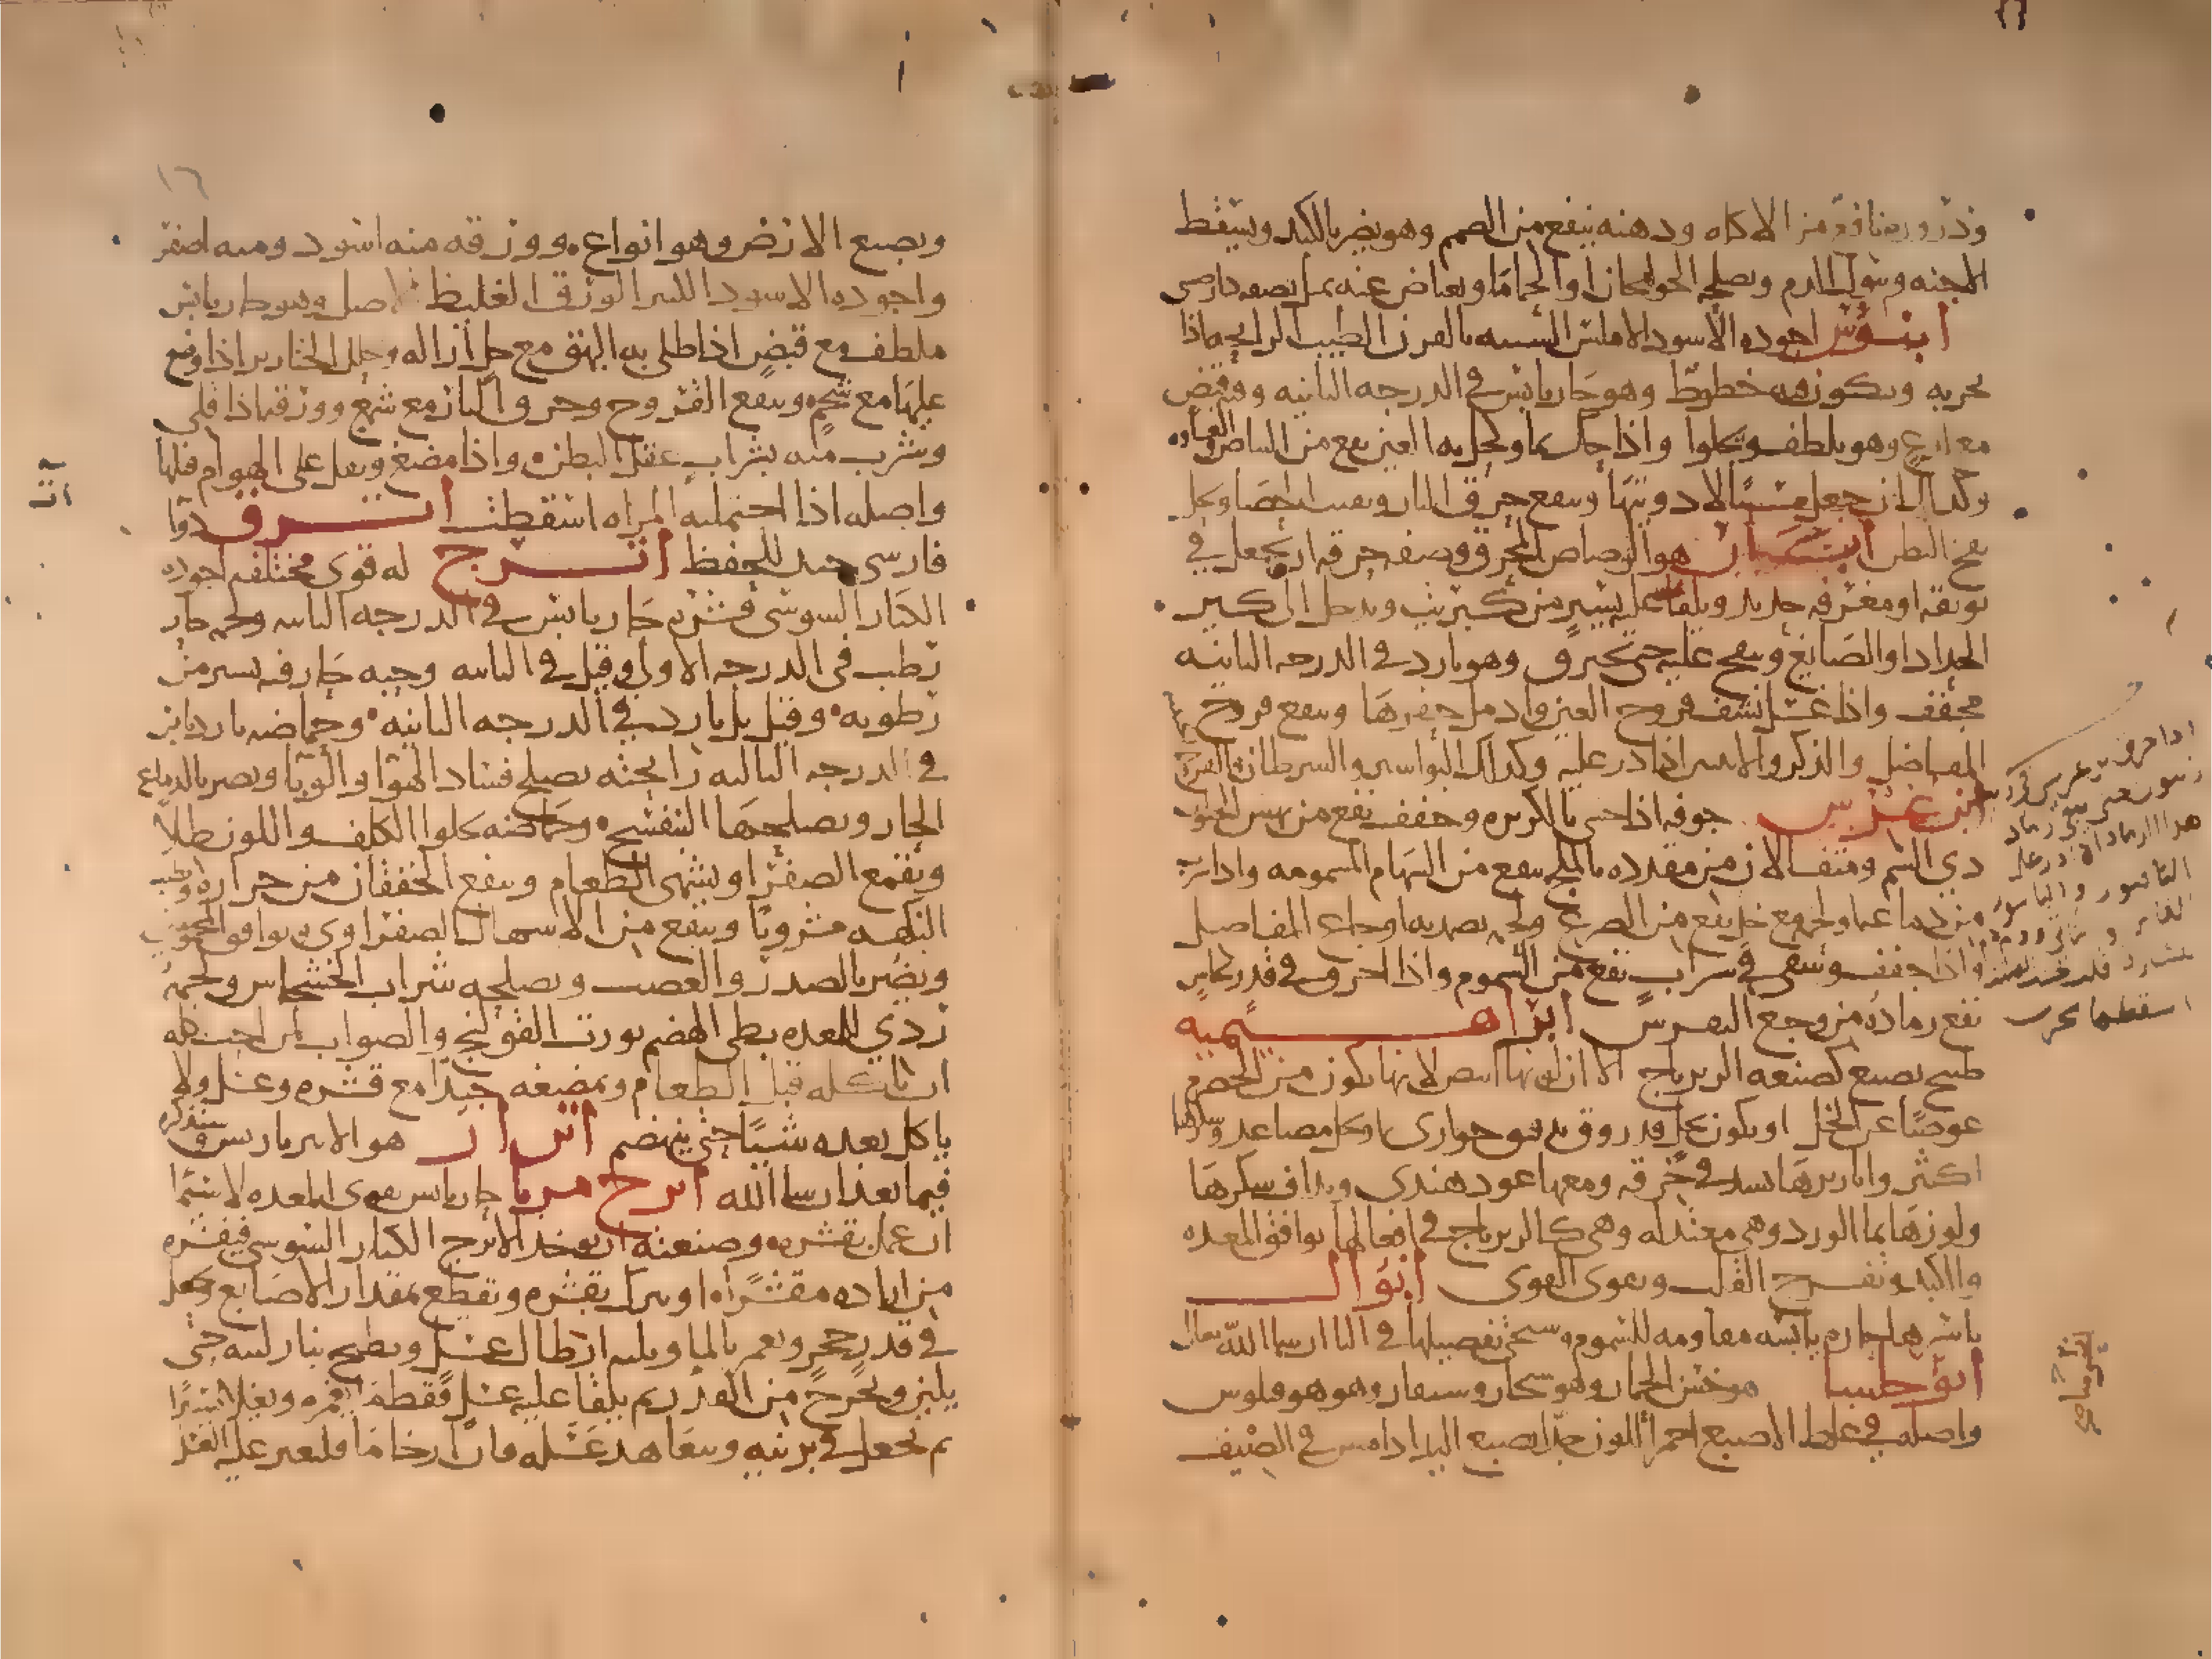 وذروره نافع من الاكله ودهنه ينفع من الصمم وهو يضر بالكبد ويسقط
الاجنه ويبول الدم ويصلحه الخولنجان او الحماما ويعتاض عنه بمثل نصفه دارصيني
ابنوس اجوده الاسود الاملس الشبيه بالقرن الطيب الرايحه اذا
بخر به ويكون فيه خطوط وهو حار يابس في الدرجه الثانيه وفيه قبض
مع لذع وهو يلطف ويجلوا واذا حك بما وكحل به العين نفع من البياض والغشاوه
وكذلك ان جعل مسنا لادويتها وينفع حرق النار ويفتت الحصا ويحل
نفخ البطن ابشتيان هو الرصاص المحرق وصفه حرقه ان يجعل في
بوتقه او مغرفه حديد ويلقا عليه يسير من كبريت ويدخل الى كير
الحداد او الصايغ وينفخ عليه حتى يحترق وهو بارد في الدرجه الثانيه
مجفف واذا غسل نشف قروح العين وادمل حفرها وينفع قروح
المفاصل والذكر والانثيين اذا ذر عليه وكذلك البواسير والسرطان
ابن عرس جوفه اذا حشي بالكزبره وجفف نفع من نهش الهوام
ذي السم ومثقالان من مقدده بالملح ينفع من السهام المسمومه واذا شرب
من دماغه ولحمه مع خل ينفع من الصرع ولحمه يضمد به اوجاع المفاصل
واذا جفف وسقي في شراب نفع من السموم واذا احرق في قدر نحاس
نفع رماده من وجع النقرس ابراهيميه
طبيخ يصنع كصنعه الزيرباج الا ان لونها ابيض لانها تكون من الحصرم
عوضا عن الخل او يكون بخل قد روق بدقيق حوارى او بخل مصاعد وسكرها
اكثر وابازيرها تشد في خرقه ومعها عود هندي ويداف سكرها
ولوزها بما الورد وهي معتدله وهي كالزيرباج في افعالها توافق المعده
والكبد وتفرح القلب وتقوي القوى ابوال
باسرها حاره يابسه مقاومه للسموم وسيجي تفصيلها في البا ان شا الله تعالى
ابو حلسا هو خس الحمار وهو شنجار وشنقار وهو هوفلوس
واصله في غلظ الاصبع احمر اللون جدا يصبغ اليد اذا مس في الصيف
ويصبغ الارض وهو انواع وورقه منه اسود ومنه اصفر
واجوده الاسود الكبير الورق الغليظ الاصل وهو حار يابس
ملطف مع قبض اذا طلي به البهق مع خل ازاله وحلل الخنازير اذا وضع
عليها مع شحم وينفع القروح وحرق النار مع شمع وورقه اذا قلي
وشرب منه بشراب عقل البطن واذا مضغ وتفل على الهوام قتلها
واصله اذا احتملته المراه اسقطت اترف دوا
فارسي جيد للحفظ اترج له قوى مختلفه اجوده
الكبار السوسي قشره حار يابس في الدرجه الثانيه ولحمه حار
رطب في الدرجه الاولى وقيل في الثانيه وحبه حار فيه يسير من
رطوبه وقيل بل بارد في الدرجه الثانيه وحماضه بارد يابس
في الدرجه الثالثه رايحته تصلح فساد الهوا والوبا وتضر بالدماغ
الحار ويصلحها البنفسج وحماضه يجلوا الكلف واللون طلا
ويقمع الصفرا ويشهي الطعام وينفع الخفقان من حراره ويطيب
النكهه مشروبا وينفع من الاسهال الصفراوي ويوافق المحمومين
ويضر بالصدر والعصب ويصلحه شراب الخشخاش ولحمه
ردي للمعده بطي الهضم يورث القولنج والصواب لمن احب اكله
ان ياكله قبل الطعام ويمضغه جيدا مع قشره وعسل ولا
ياكل بعده شيئا حتى ينهضم اترار هو الامبرباريس وسنذكره
فيما بعد ان شا الله اترج مربا حار يابس يقوي المعده لا سيما
ان عمل بقشره وصنعته ان يوخذ الاترج الكبار السوسي فيقشره
من اراده مقشرا او يترك بقشره ويقطع بمقدار الاصابع ويجعل
في قدر حجر ويغمر بالما وثلثه ارطال عسل ويطبخ بنار لينه حتى
يلين ويخرج من القدر ثم يلقا عليه عسل فقط ما يغمره ويغلا يسيرا
ثم يجعل في برنيه ويتعاهد عسله فان ارخا ما فليغير عليه العسل